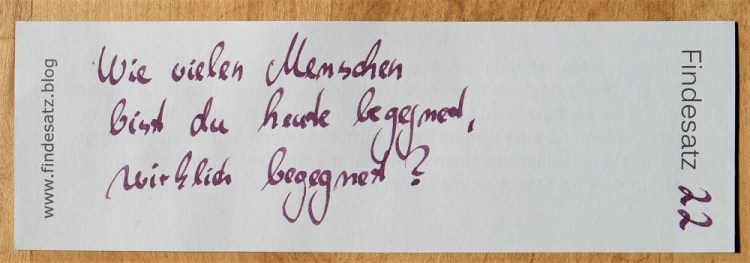 www.findesatz.blog
Wie vielen Menschen
bist du heute begegnet,
wirklich begegnet?
Findesatz 22